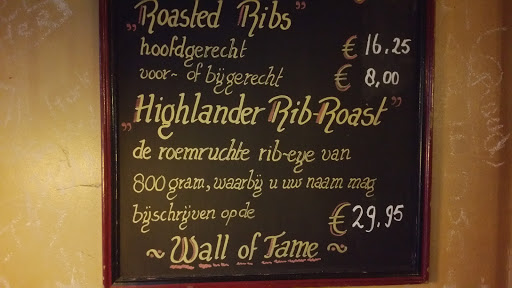 „Roasted Ribs"
hoofdgerecht € 16,25
voor- of bijgerecht € 8,00
„Highlander Rib-Roast"
de roemruchte rib-eye van
800 gram, waarbij u uw naam mag
bijschrijven op de €29,95
~ Wall of Fame ~